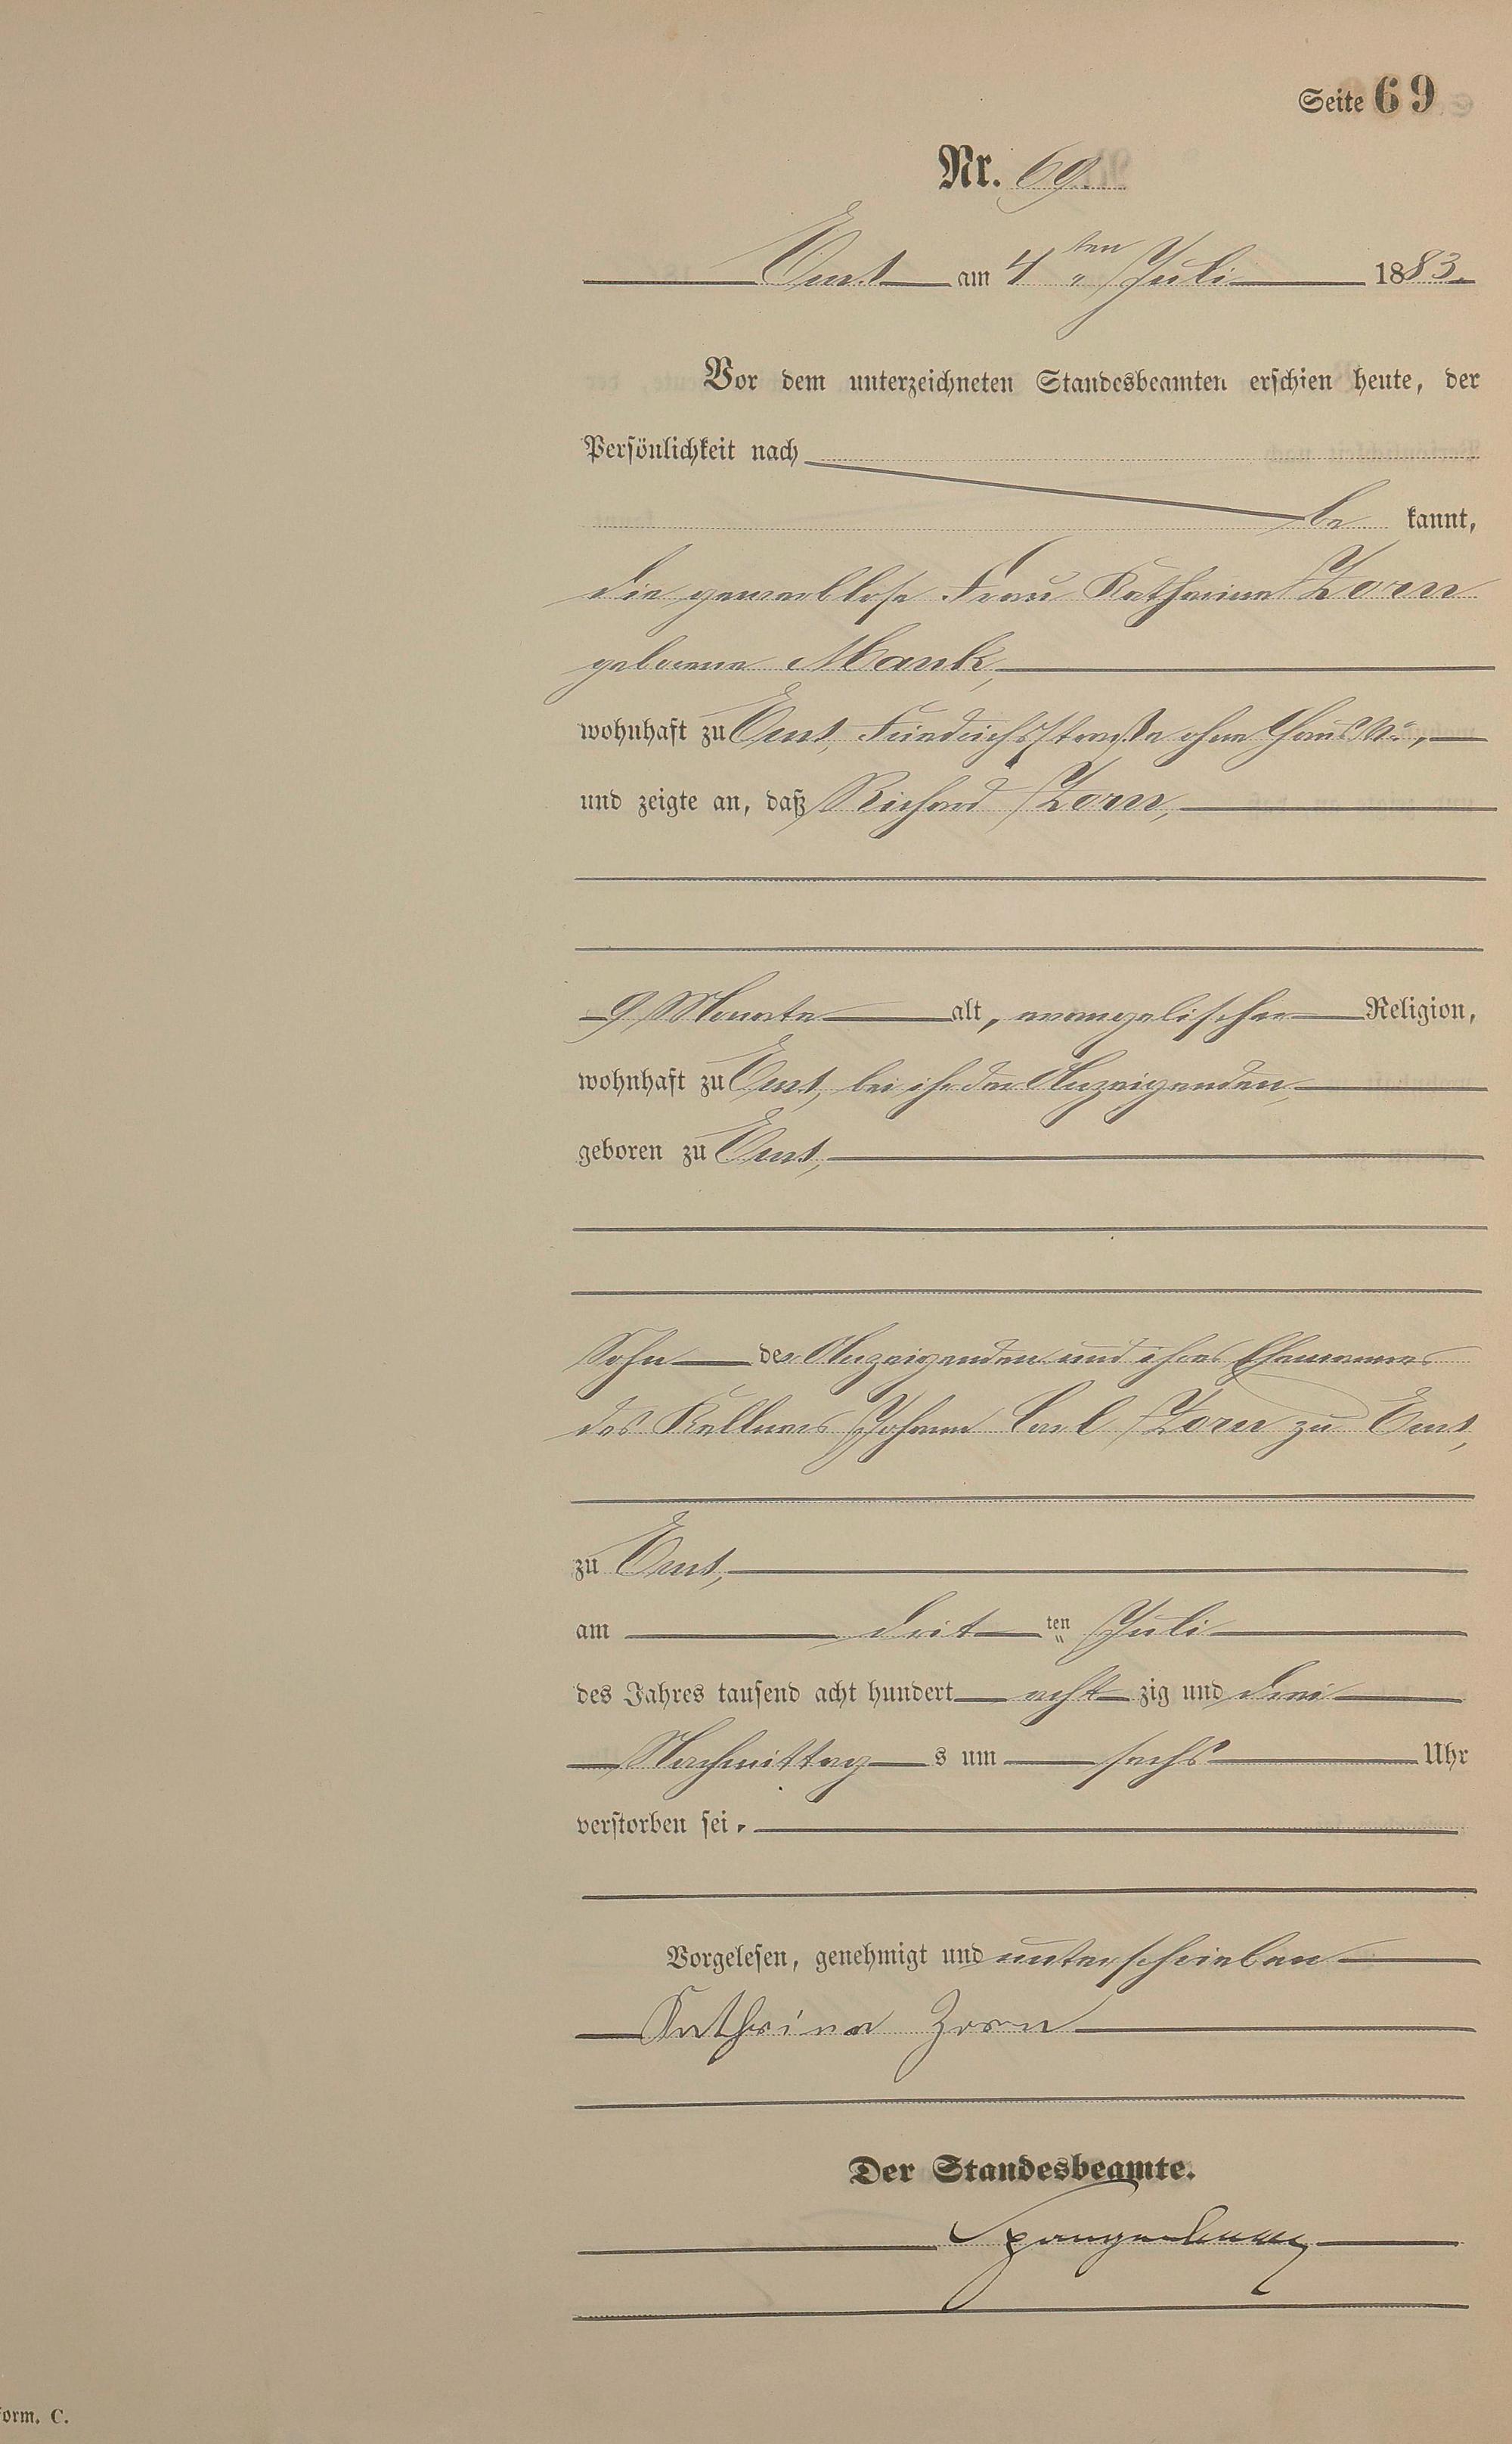 Seite 69
Nr. 69.
Ems am 4ten Juli 1883.
Vor dem unterzeichneten Standesbeamten erschien heute, der
Persönlichkeit nach
be kannt,
die gewerblose Frau Katharina Zorn
geborene Mank,
wohnhaft zu Ems, Friedrichsstraße ohne Haus No,
und zeigte an, daß Richard Zorn,
9 Monate alt, evangelischer Religion,
wohnhaft zu Ems, bei ihr der Anzeigenden,
geboren zu Ems,
Sohn der Anzeigenden und ihres Ehemannes
des Kellners Johann Carl Zorn zu Ems,
zu Ems,
am drit ten Juli
des Jahres tausend acht hundert acht zig und drei
Nachmittag s um sechs Uhr
verstorben sei.
Vorgelesen, genehmigt und unterschrieben
Kathrina Zorn
Der Standesbeamte.
Spangenberg
form. C.